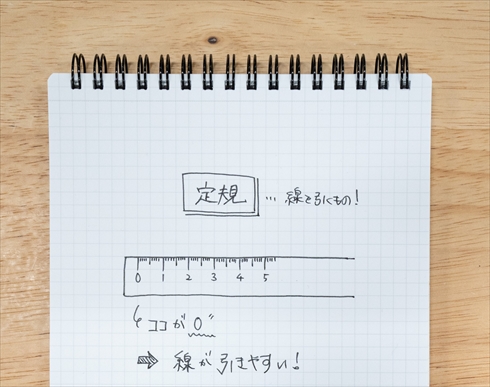 定規 … 線を引くもの!
0 1 2 3 4 5
ココが "0"
⇨ 線が引きやすい!